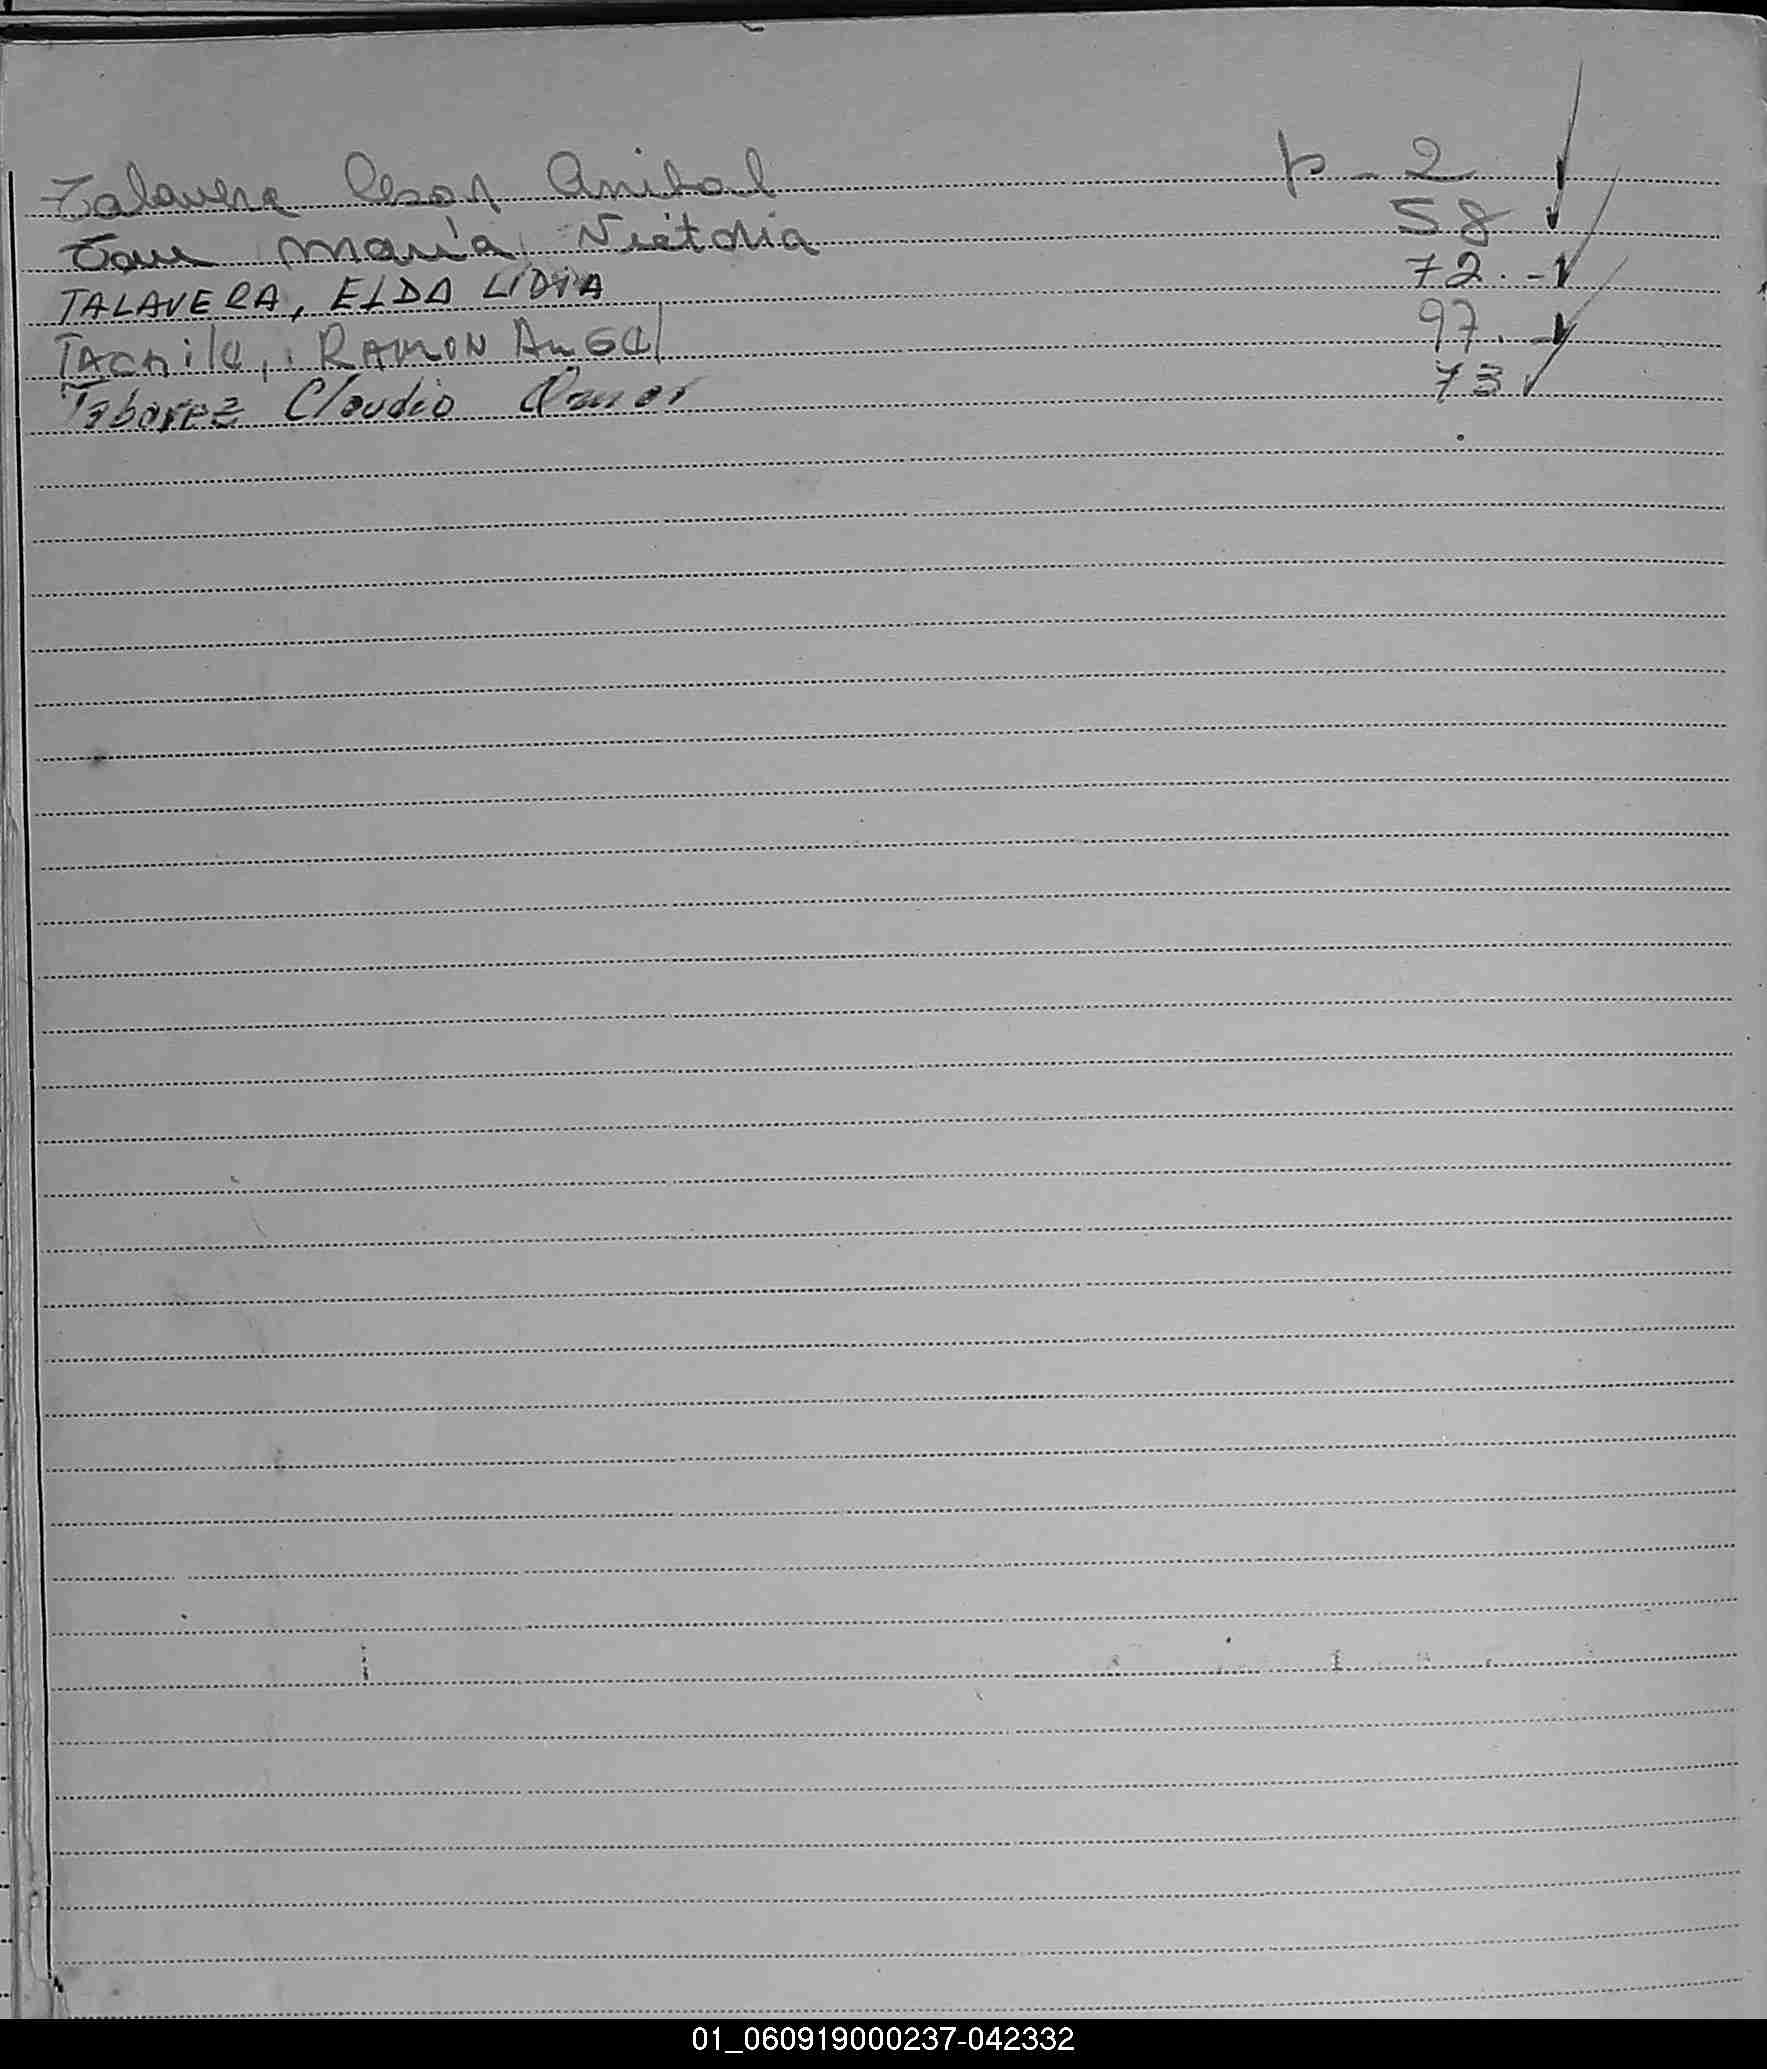 Talavera Cesar Anibal p - 2
María Victoria 58
TALAVERA, ELDA LIDIA 72. -
RAMON AnGel 97. -
Taborez Claudio Omar 73
01_060919000237-042332